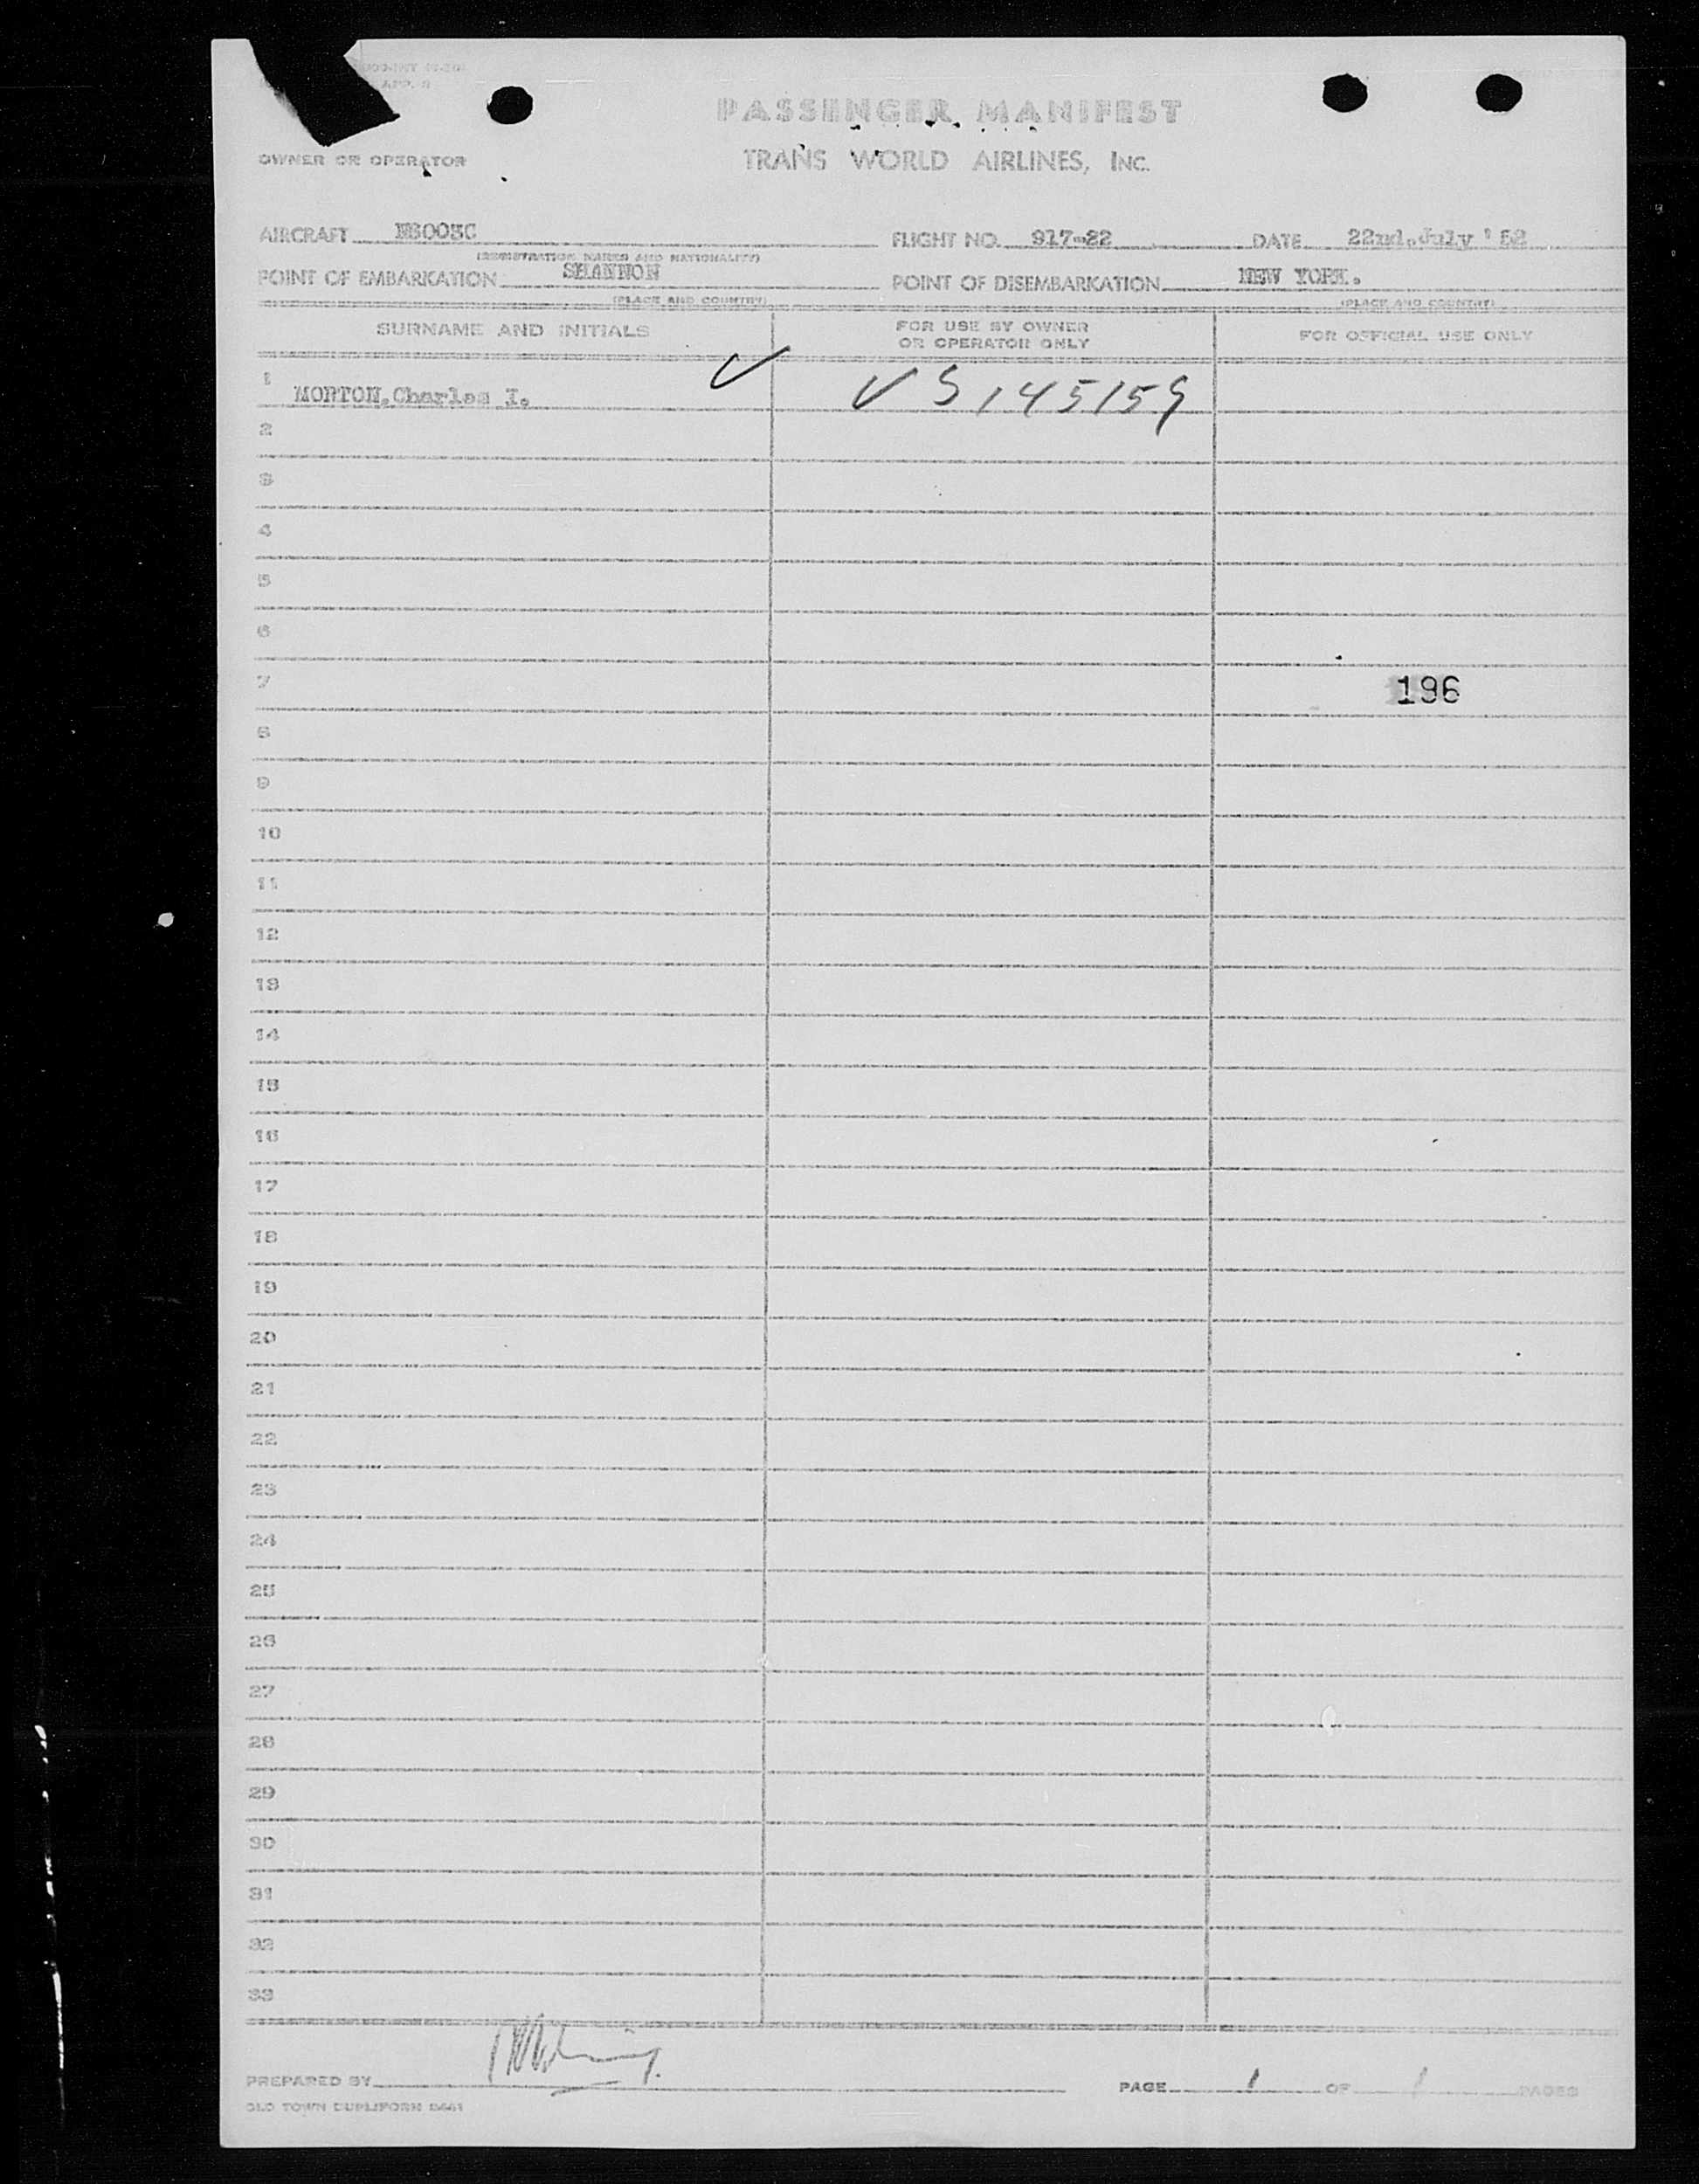 APP. 8
PASSENGER MANIFEST
OWNER OR OPERATOR TRANS WORLD AIRLINES, INC.
AIRCRAFT N6003C FLIGHT NO. 917-22 DATE 22nd.July '52
(REGISTRATION MARKS AND NATIONALITY)
POINT OF EMBARKATION SHANNON POINT OF DISEMBARKATION NEW YORK.
(PLACE AND COUNTRY) (PLACE AND COUNTRY)
SURNAME AND INITIALS FOR USE BY OWNER OR OPERATOR ONLY FOR OFFICIAL USE ONLY
1 MORTON,Charles I. ✓ ✓ S145159
2
3
4
5
6
7 196
8
9
10
11
12
13
14
15
16
17
18
19
20
21
22
23
24
25
26
27
28
29
30
31
32
33
PREPARED BY PAGE 1 OF 1 PAGES
OLD TOWN DUPLIFORM